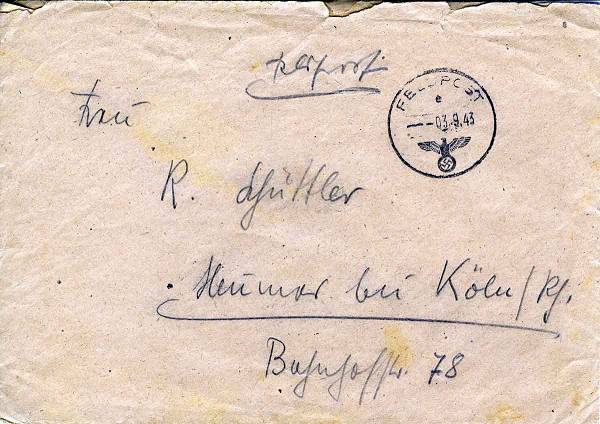 Feldpost
FELDPOST
e
-03.9.43
Frau
R. Schüttler
Heumar bei Köln/Rh.
Bahnhofstr. 78